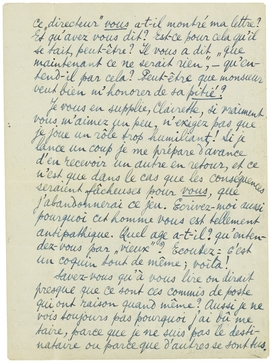 ce „directeur" vous a-t-il montré ma lettre?
Et qu'avez vous dit? Est-ce pour cela qu'il
se tait, peut-être? Il vous a dit „que
maintenant ce ne serait rien", – qu'en-
tend-il par cela? Peut-être que monsieur
veut bien m'honorer de sa pitié?
Je vous en supplie, Clairette, si vraiment
vous m'aimez un peu, n'exigez pas que
je joue un rôle trop humiliant! si je
lance un coup je me prépare d'avance
d'en recevoir un autre en retour, et ce
n'est que dans le cas que les conséquences
seraient fâcheuses pour vous, que
j'abandonnerai ce jeu. Ecrivez-moi aussi
pourquoi cet homme vous est tellement
antipathique. Quel age a-t-il? qu'enten-
dez-vous par „vieux"? Ecoutez: c'est
un coquin tout de même; voilà!
Savez-vous qu'à vous lire on dirait
presque que ce sont ces commis de poste
qui ont raison quand même? Aussi je ne
vois toujours pas pourquoi j'ai dû me
taire, parce que je ne suis pas le desti-
nataire ou parce que d'autres se sont tus,